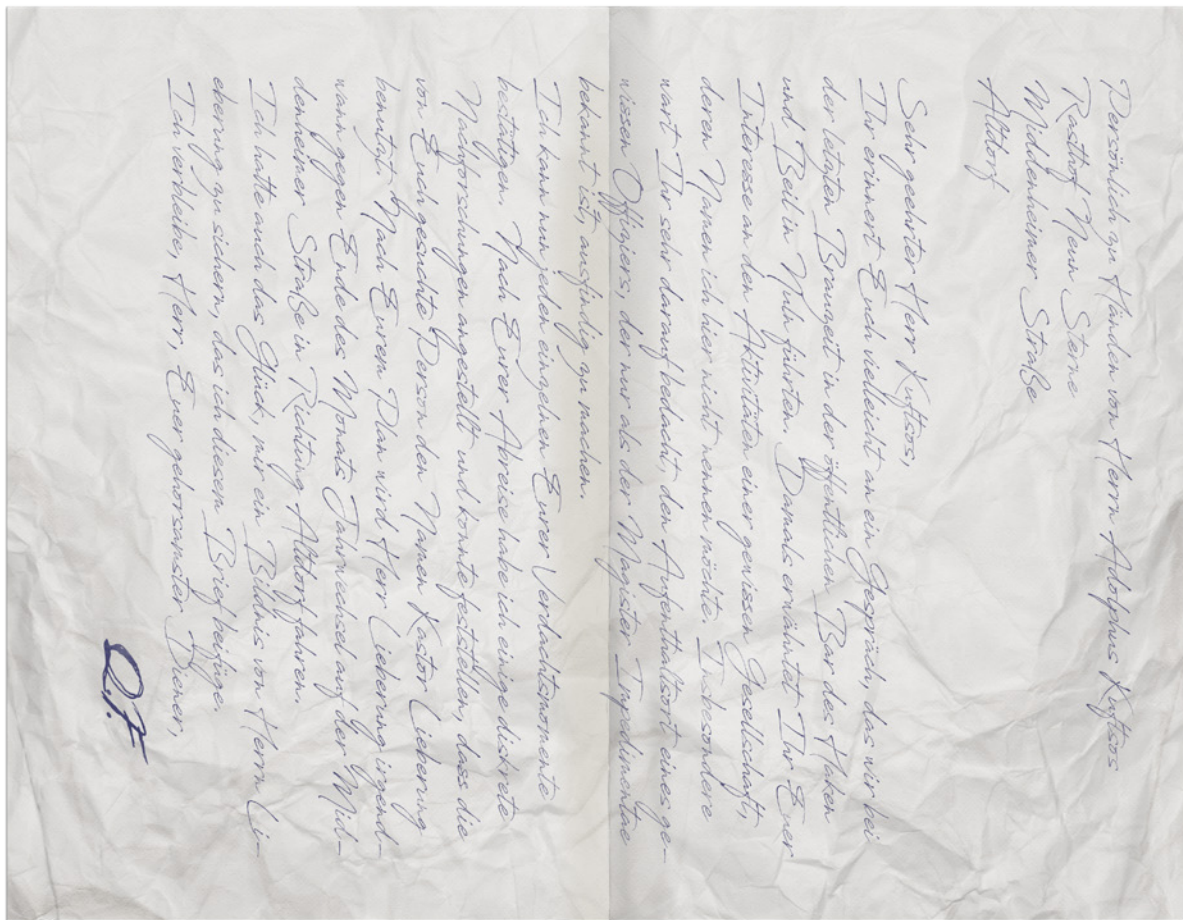 Persönlich zu Händen von Herrn Adolphus Kuftsos
Rasthof Neun Sterne
Middenheimer Straße
Altdorf
Sehr geehrter Herr Kuftsos,
Ihr erinnert Euch vielleicht an ein Gespräch, das wir bei
der letzten Brauzeit in der öffentlichen Bar des Haken
und Beil in Nuln führten. Damals erwähntet Ihr Euer
Interesse an den Aktivitäten einer gewissen Gesellschaft,
deren Namen ich hier nicht nennen möchte. Insbesondere
wart Ihr sehr darauf bedacht, den Aufenthaltsort eines ge-
wissen Offiziers, der nur als der Magister Impedimentae
bekannt ist, ausfindig zu machen.
Ich kann nun jeden einzelnen Eurer Verdachtsmomente
bestätigen. Nach Eurer Abreise habe ich einige diskrete
Nachforschungen angestellt und konnte feststellen, dass die
von Euch gesuchte Person den Namen Kastor Lieberung
benutzt. Nach Eurem Plan wird Herr Lieberung irgend-
wann gegen Ende des Monats Jahrwachsel auf der Mid-
denheimer Straße in Richtung Altdorf fahren.
Ich hatte auch das Glück, mir ein Bildnis von Herrn Li-
eberung zu sichern, das ich diesem Brief beifüge.
Ich verbleibe, Herr, Euer gehorsamster Diener,
Q.F.